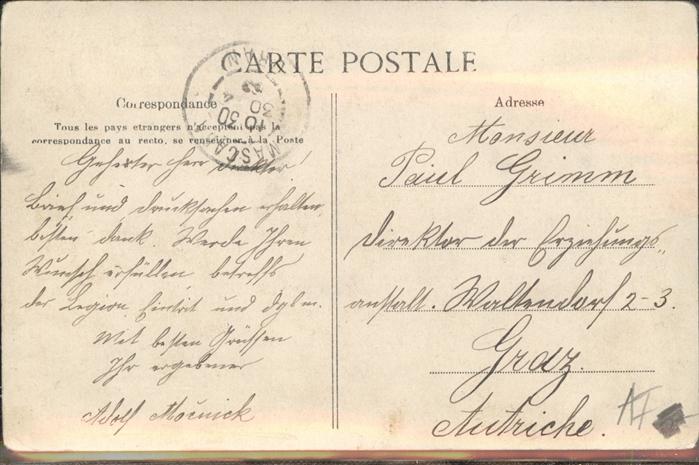 CARTE POSTALE
Correspondance
Tous les pays etrangers n'acceptent pas la
correspondance au recto, se renseigner à la Poste
MASCARA
ORAN
10 30
30
4
Geherter Herr Direktor!
Brief und Drucksachen erhalten,
besten dank. Werde Ihren
Wunsch erfüllen betreffs
der Legion Eintrit und dglm.
Mit besten Grüssen
Ihr ergebener
Adolf Močnick
Adresse
Monsieur
Paul Grimm
Direktor der Erziehungs„
anstalt. Waltendorf 2-3.
Graz.
Autriche.